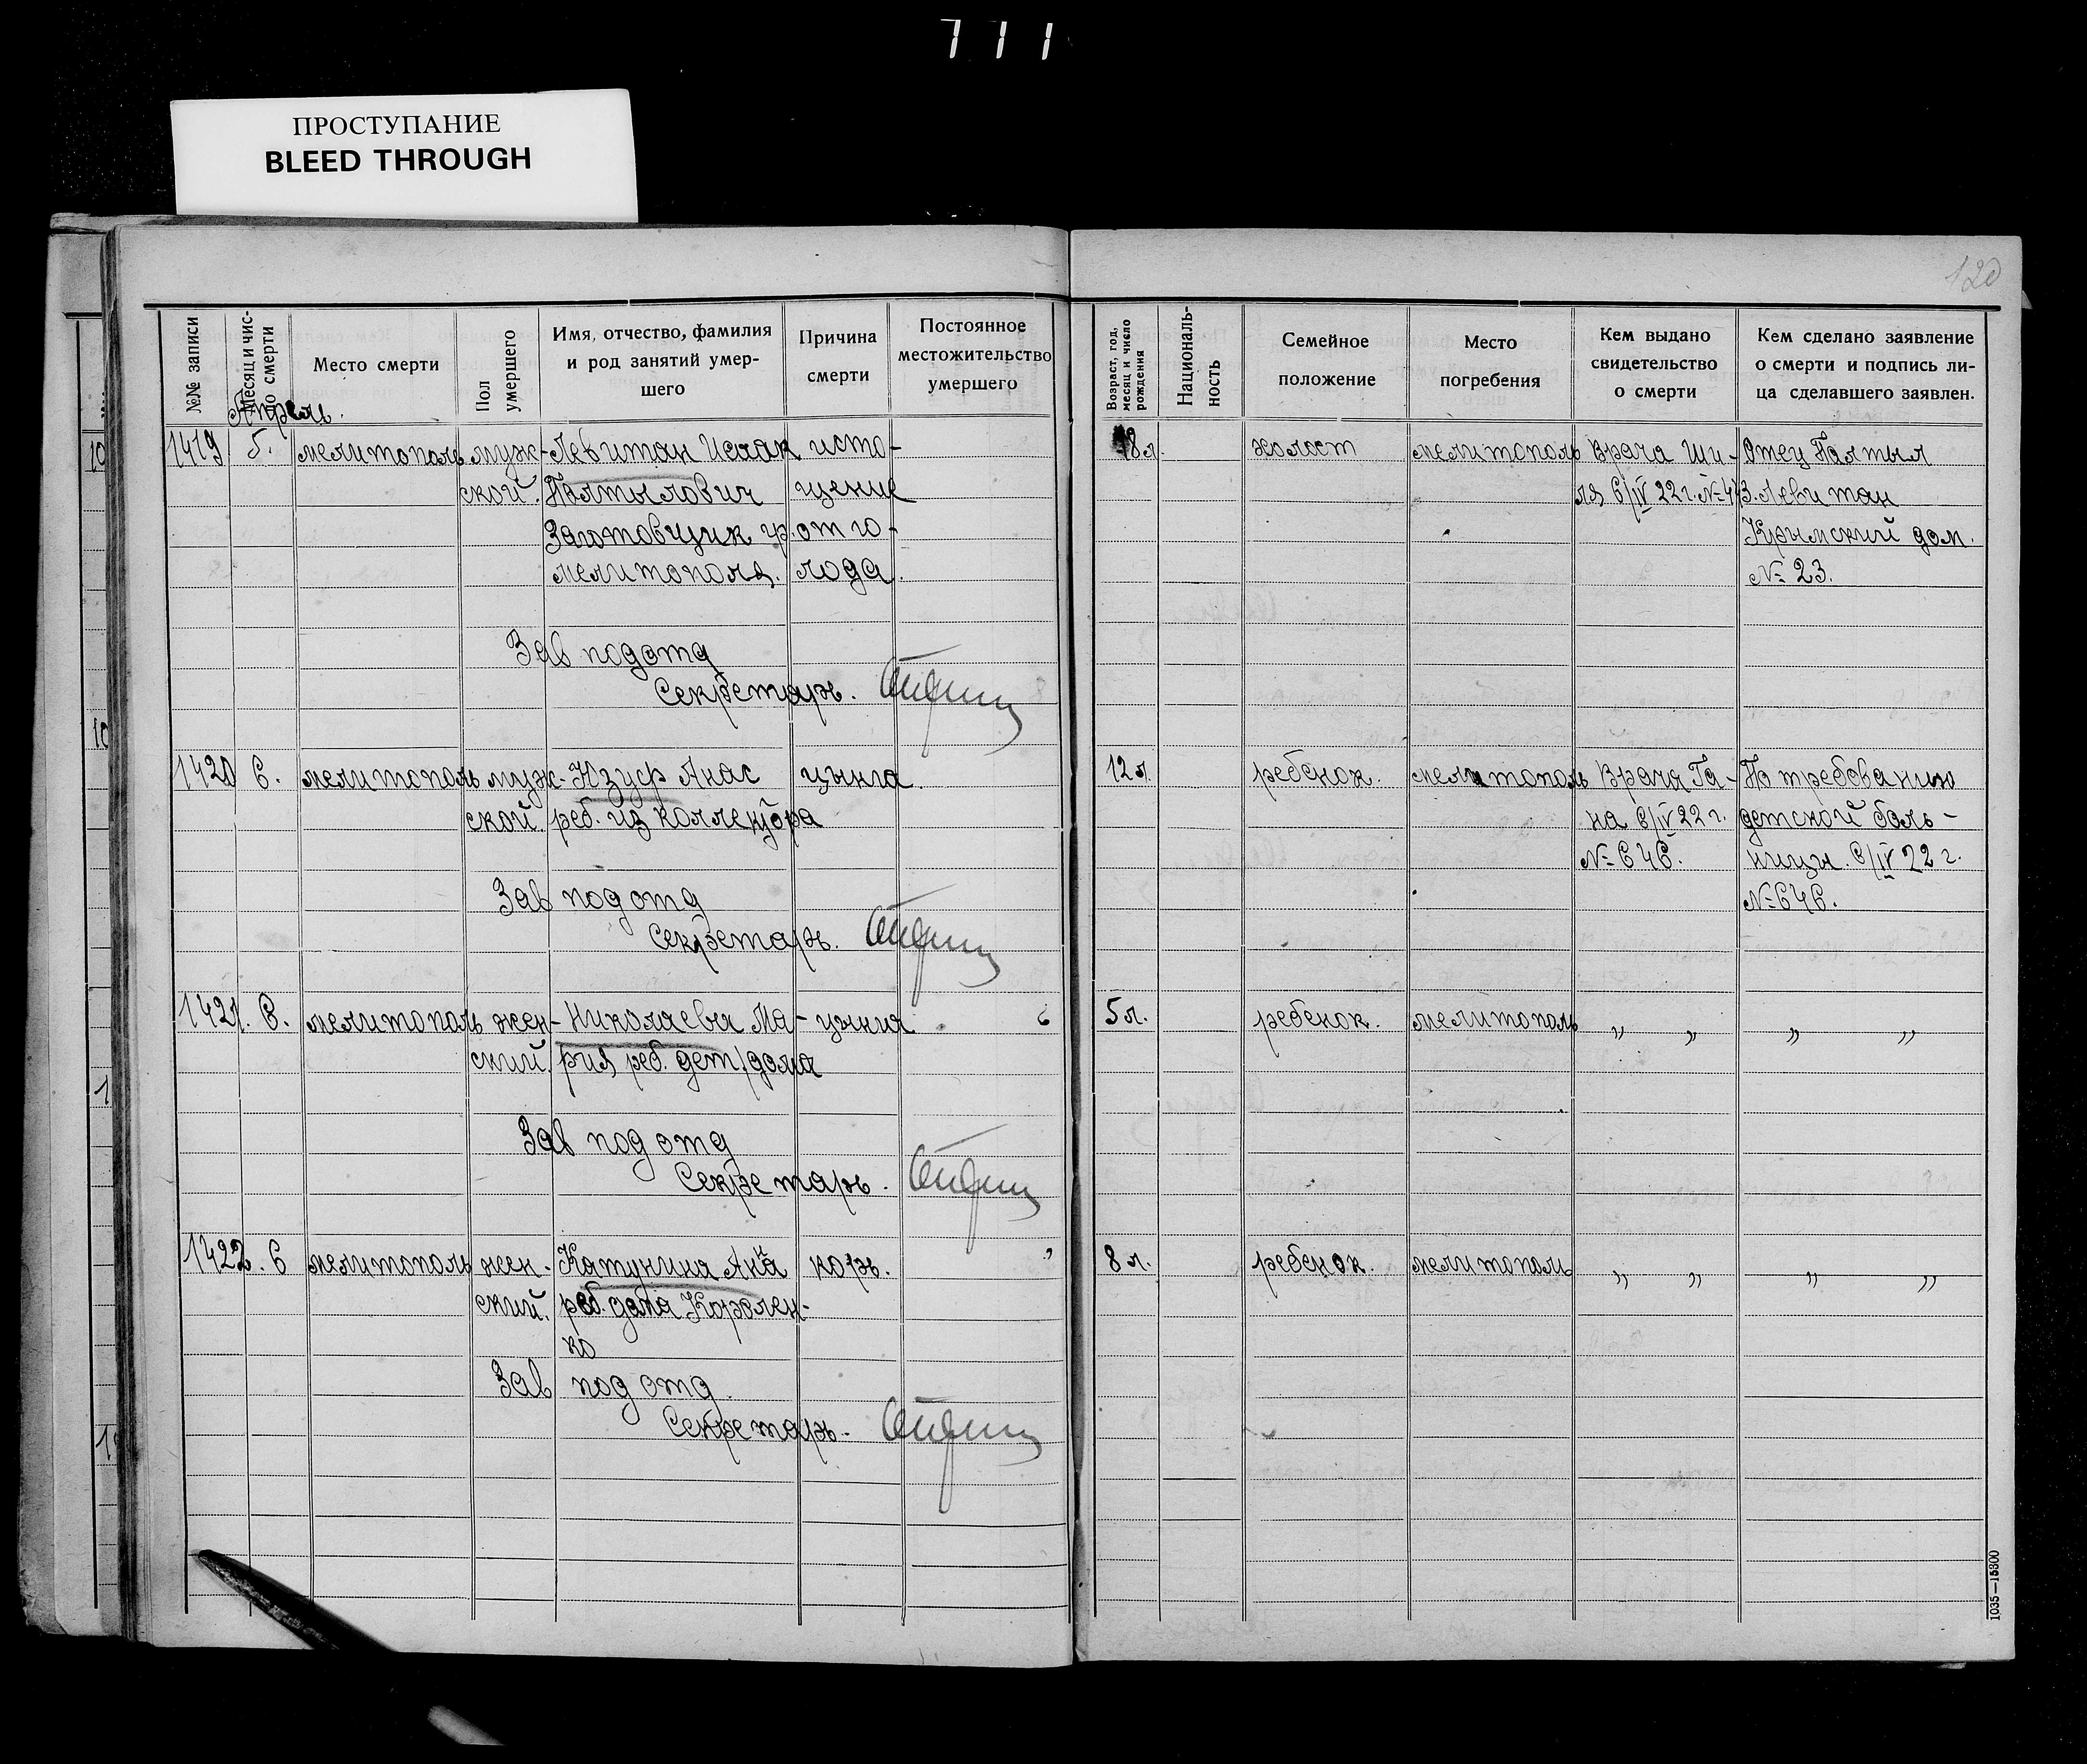 711
ПРОСТУПАНИЕ
BLEED THROUGH
120
№№ записи
Месяц и чис-
ло смерти
Место смерти
Пол
умершего
Имя, отчество, фамилия
и род занятий умер-
шего
Причина
смерти
Постоянное
местожительство
умершего
Возраст, год,
месяц и число
рождения
Националь-
ность
Семейное
положение
Место
погребения
Кем выдано
свидетельство
о смерти
Кем сделано заявление
о смерти и подпись ли-
ца сделавшего заявлен.
Апрель.
1419 5. мелитополь муж- Левитан Исаак исто- 18 л. холост мелитополь Врача Ши- Отец Палтыл
ской. Палтылович щение ля 6/IV 22 г. № 443. Левитан
Заготовщик гр. от го- Крымский дом.
мелитополя. лода. № 23.
Зав подотд
Секретарь.
1420 6. мелитополь муж- Юзуф Анас цынга. 12 л. ребенок. мелитополь Врача Га- По требованию
ской. реб. из коллектора на 6/IV 22 г. детской боль-
№ 646. ницы. 6/IV 22 г.
№ 646.
Зав под отд
Секретарь.
1421. 6. мелитополь жен- Николаева Ма- цынга 5 л. ребенок. мелитополь „ „ „ „
ский. рия реб. дет/дома
Зав под отд
Секретарь.
1422. 6 мелитополь жен- Катунина Анна корь. 8 л. ребенок. мелитополь „ „ „ „
ский. реб. дома Королен-
ко
Зав под отд
Секретарь.
1035—15800